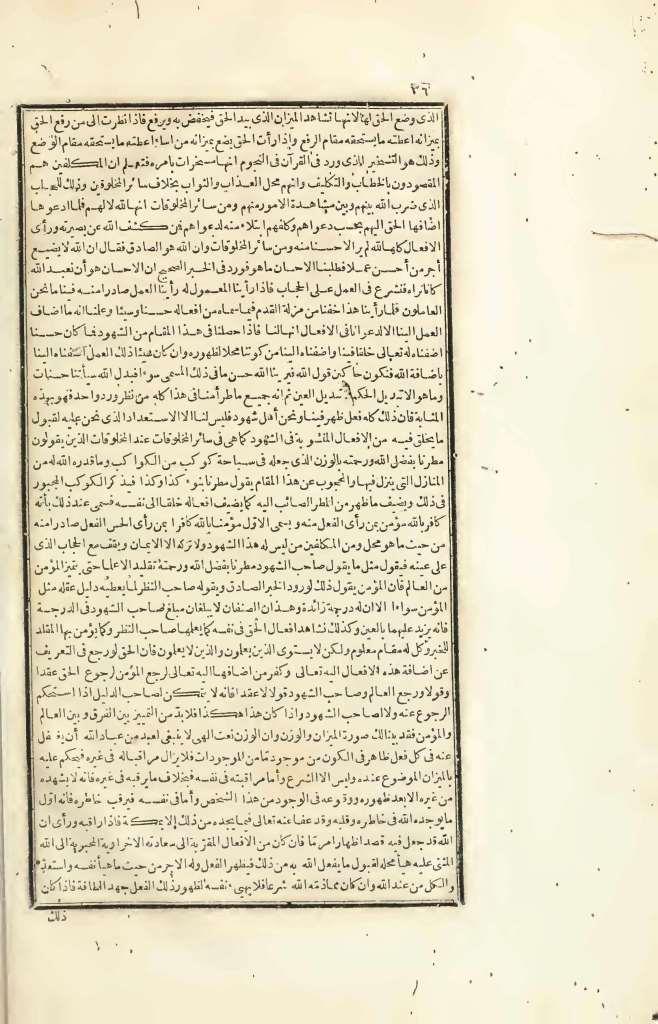 ٣٦
الذى وضع الحق لها لانها تشاهد الميزان الذى بيد الحق فيخفض به ويرفع فاذا نظرت الى من رفع الحق
بميزانه اعطته ما يستحقه مقام الرفع واذا رأت الحق يضع بميزانه من اساء اعطته ما يستحقه مقام الوضع
وذلك هو التسخير الذى ورد فى القرآن فى النجوم انها مسخرات بامره فتعلم ان المكلفين هم
المقصودون بالخطاب والتكليف وانهم محل العذاب والثواب بخلاف سائر المخلوقين وذلك للحجاب
الذى ضرب الله بينهم وبين مشاهدة الامور منهم ومن سائر المخلوقات انها لله لا لهم فلما ادعوها
اضافها الحق اليهم بحسب دعواهم وكلفهم ابتلاء منه لدعواهم فمن كشف الله عن بصيرته ورأى
الافعال كلها لله لم ير الا حسنا منه ومن سائر المخلوقات وان الله هو الصادق فقال ان الله لا يضيع
أجر من أحسن عملا فطلبنا الاحسان ما هو فورد فى الخبر الصحيح ان الاحسان هو أن نعبد الله
كاننا نراه فنشرع فى العمل على الحجاب فاذا رأينا المعمول له رأينا العمل صادرا منه فينا ما نحن
العاملون فلما رأينا هذا خفنا من مزلة القدم فيما سماه من افعاله حسنا وسيئا وعلمنا انه ما اضاف
العمل الينا الا لدعوانا فى الافعال انها لنا فاذا حصلنا فى هذا المقام من الشهود فما كان حسنا
اضفناه له تعالى خلقا فينا واضفناه الينا من كوننا محلا لظهوره وان كان سيئا ذلك العمل اضفناه الينا
باضافة الله فنكون حاكين قول الله فيرينا الله حسن ما فى ذلك المسمى سوءا فيبدل الله سيآتنا حسنات
وما هو الا تبديل الحكم لا تبديل العين ثم انه جميع ما طرأ منا فى هذا كله من نظر وردّ واحد فهو بهذه
المثابة فان ذلك كله فعل ظهر فينا ونحن أهل شهود فليس لنا الا الاستعداد الذى نحن عليه لقبول
ما يخلق فيه من الافعال المنسوبة فى الشهود كما هى فى سائر المخلوقات عند المخلوقات الذين يقولون
مطرنا بفضل الله ورحمته بالوزن الذى جعله فى سباحة كوكب من الكواكب وما قدره الله له من
المنازل التى ينزل فيها والمحجوب عن هذا المقام يقول مطرنا بنوء كذا وكذا فيذكر الكوكب المجبور
فى ذلك ويضيف ما ظهر من المطر الصائب اليه كما يضيف افعاله خلقا الى نفسه فسمى عند ذلك بأنه
كافر بالله مؤمن بمن رأى الفعل منه ويسمى الاول مؤمنا بالله كافرا بمن رأى الحس الفعل صادرا منه
من حيث ما هو محل ومن المكلفين من ليس له هذا الشهود ولا تركه الا الايمان ويقف مع الحجاب الذى
على عينه فيقول مثل ما يقول صاحب الشهود مطرنا بفضل الله ورحمته تقليدا لا علما حتى يتميز المؤمن
من العالم فان المؤمن يقول ذلك لورود الخبر الصادق ويقوله صاحب النظر لما يعطيه دليل عقله مثل
المؤمن سواء الا ان له درجة زائدة وهذان الصنفان لا يبلغان مبلغ صاحب الشهود فى الدرجة
فانه يزيد عليهما بالعين وكذلك نشاهد افعال الحق فى نفسه كما يعلمها صاحب النظر وكما يؤمن بها المقلد
للخبر وكل له مقام معلوم ولكن لا يستوى الذين يعملون والذين لا يعملون فان الحق لو رجع فى التعريف
عن اضافة هذه الافعال اليه تعالى وكفر من اضافها اليه تعالى لرجع المؤمن لرجوع الحق عقدا
وقولا ورجع العالم وصاحب الشهود قولا لا عقدا فانه لا يتمكن لصاحب الدليل اذا استحكم
الرجوع عنه ولا صاحب الشهود واذا كان هذا هكذا فلا بد من التمييز بين الفرق وبين العالم
والمؤمن فقد بينا لك صورة الميزان والوزن وان الوزن نعت الهى لا ينبغى لعبد من عباد الله أن يغفل
عنه فى كل فعل ظاهر فى الكون من موجود ما من الموجودات فلا يزال مراقبا له فى غيره فيحكم عليه
بالميزان الموضوع عنده وليس الا الشرع وأما مراقبته فى نفسه فبخلاف ما يرقبه فى غيره فانه لا يشهده
من غيره الا بعد ظهوره ووقوعه فى الوجود من هذا الشخص وأما فى نفسه فيرقب خاطره فانه اول
ما يوجده الله فى خاطره وقلبه وقد عفا عنه تعالى فيما يجده من ذلك الا بمكة فاذا راقبه ورأى ان
الله قد جعل فيه قصد اظهار امر ما فان كان من الافعال المقربة الى سعادته الاخراوية المحبوبة الى الله
المثنى عليه هيأ محله لقبول ما يفعل الله به من ذلك فيظهر الفعل وله الاجر من حيث ما هيأ نفسه واستعد
والكل من عند الله وان كان مما ذمته الله شرعا فلا يهيىء نفسه لظهور ذلك الفعل جهد الطاقة فاذا كان
ذلك